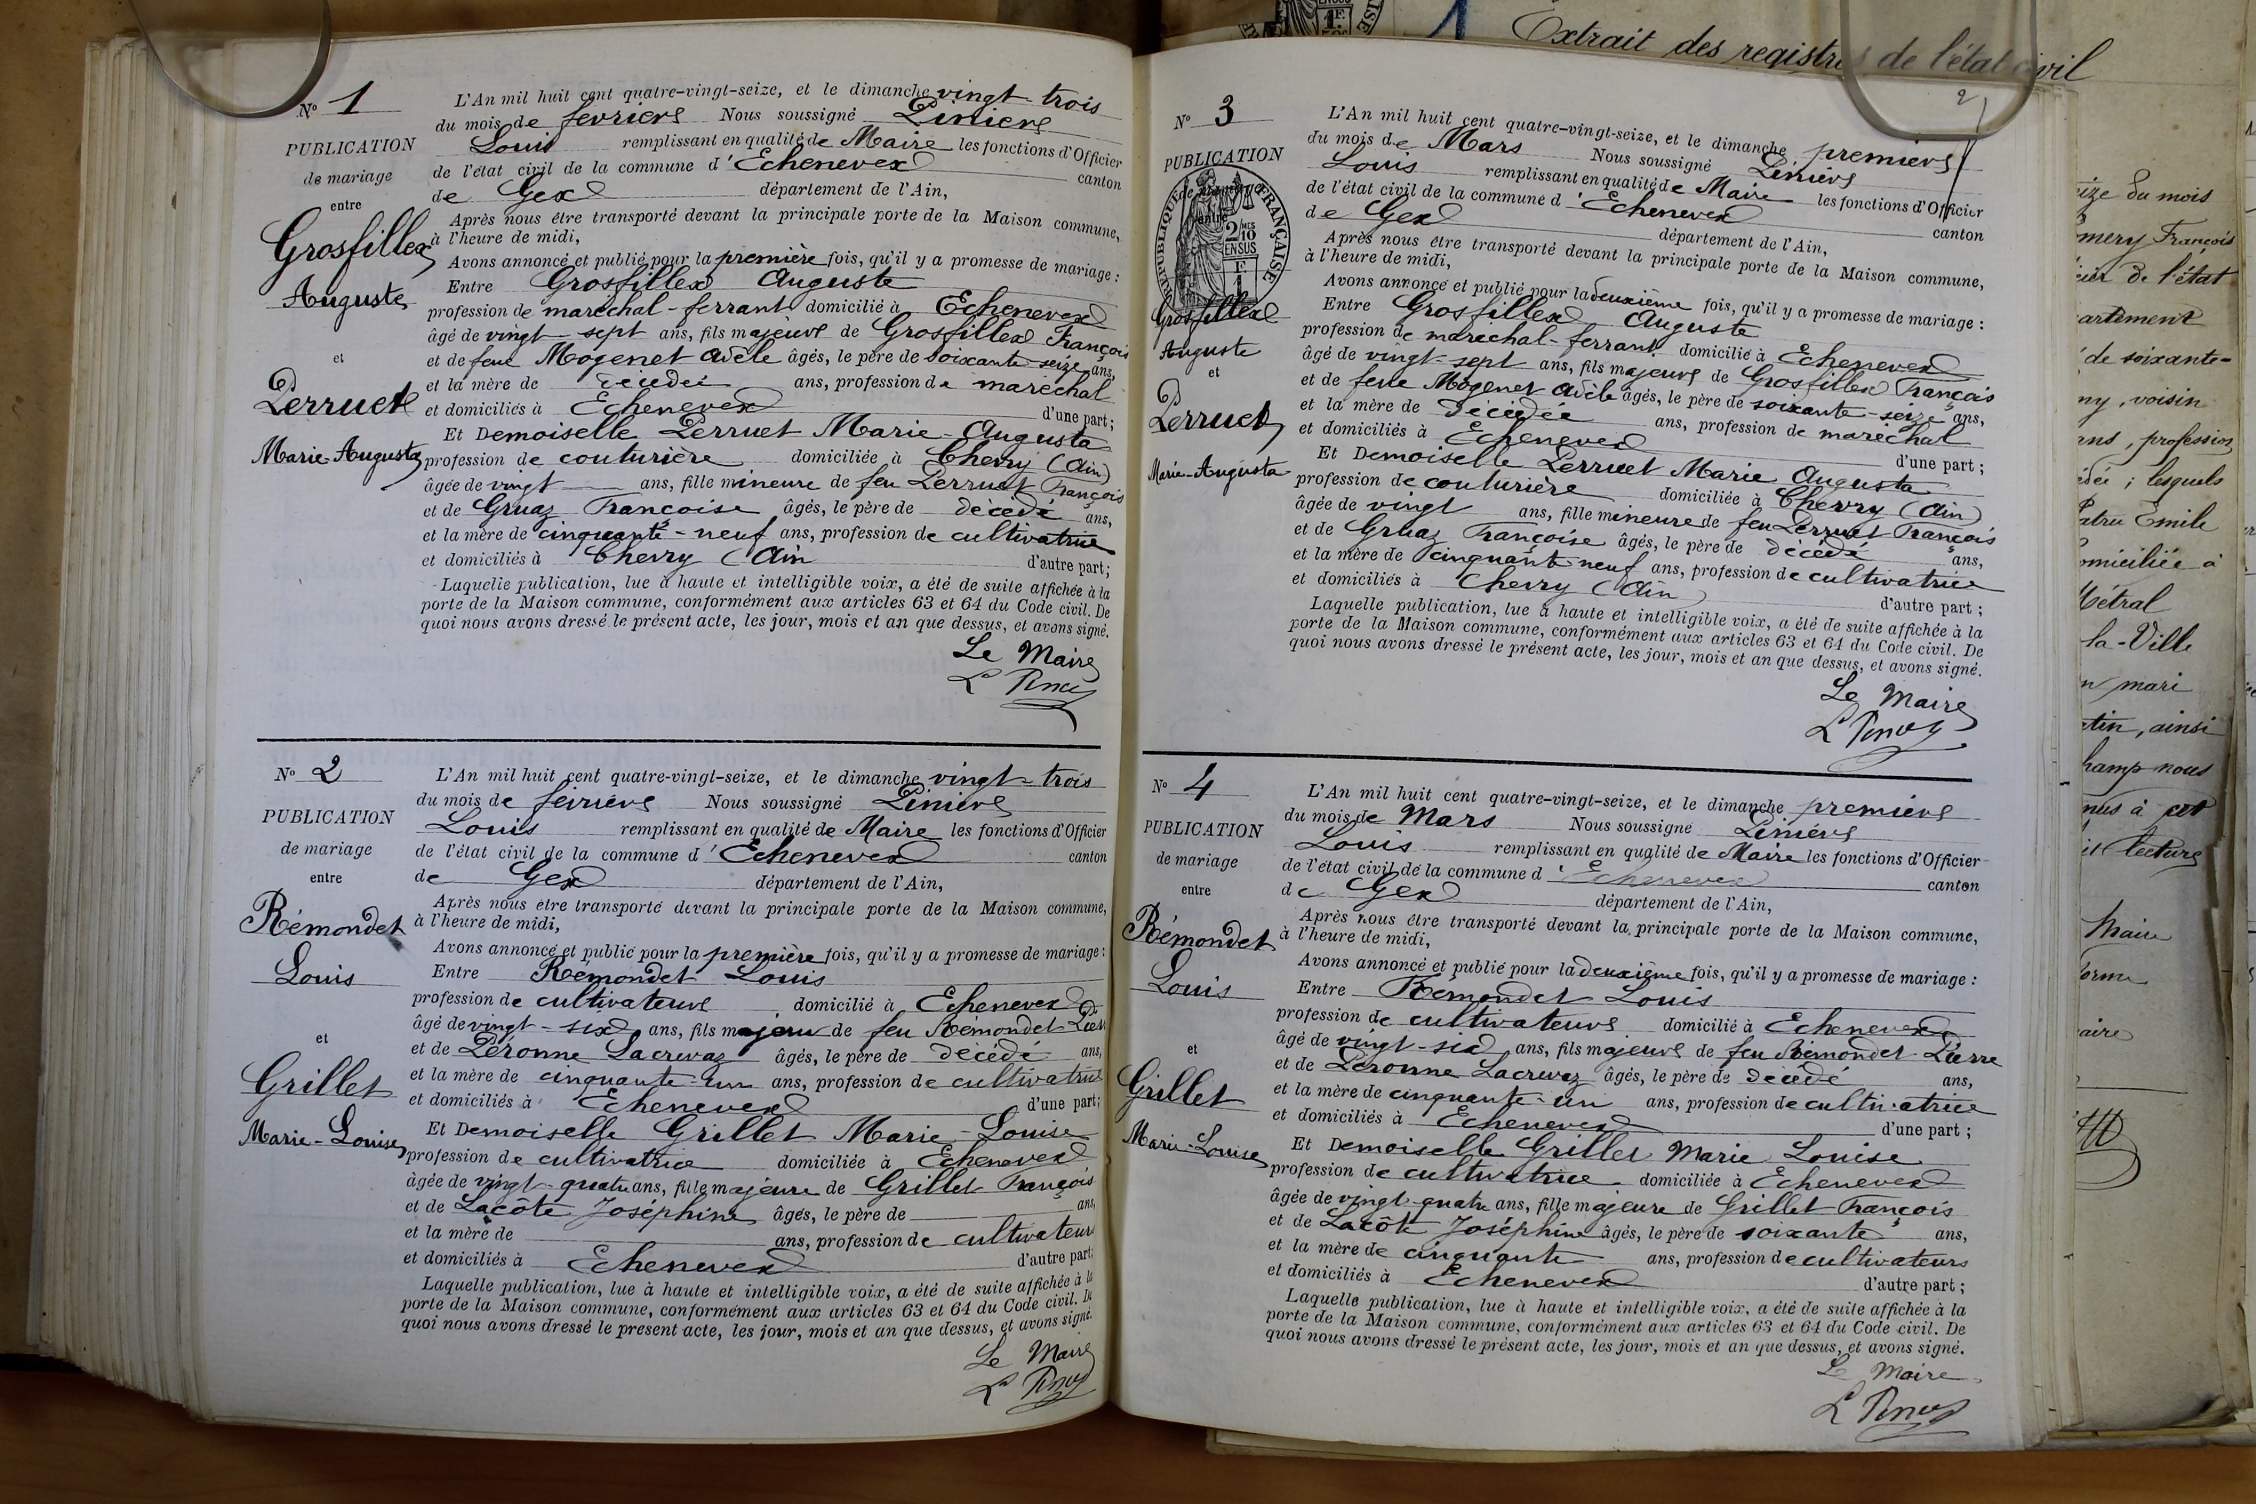 Extrait des registres de l'état civil
N° 1
PUBLICATION
de mariage
entre
Grosfillex
Auguste
et
Perruet
Marie-Augusta
L'An mil huit cent quatre-vingt-seize, et le dimanche vingt-trois
du mois de février Nous soussigné Pinier
Louis remplissant en qualité de Maire les fonctions d'Officier
de l'état civil de la commune d'Echenevex canton
de Gex département de l'Ain,
Après nous être transporté devant la principale porte de la Maison commune,
à l'heure de midi,
Avons annoncé et publié pour la première fois, qu'il y a promesse de mariage :
Entre Grosfillex Auguste
profession de maréchal-ferrant domicilié à Echenevex
âgé de vingt-sept ans, fils majeur de Grosfillex François
et de feue Mogenet Adèle âgés, le père de soixante-seize ans,
et la mère de décédée ans, profession de maréchal
et domiciliés à Echenevex d'une part ;
Et Demoiselle Perruet Marie-Augusta
profession de couturière domiciliée à Chevry (Ain)
âgée de vingt ans, fille mineure de feu Perruet François
et de Gruaz Françoise âgés, le père de décédé ans,
et la mère de cinquante-neuf ans, profession de cultivatrice
et domiciliés à Chevry (Ain d'autre part ;
Laquelle publication, lue à haute et intelligible voix, a été de suite affichée à la
porte de la Maison commune, conformément aux articles 63 et 64 du Code civil. De
quoi nous avons dressé le présent acte, les jour, mois et an que dessus, et avons signé.
Le Maire
N° 2
PUBLICATION
de mariage
entre
Rémondet
Louis
et
Grillet
Marie-Louise
L'An mil huit cent quatre-vingt-seize, et le dimanche vingt-trois
du mois de février Nous soussigné Pinier
Louis remplissant en qualité de Maire les fonctions d'Officier
de l'état civil de la commune d'Echenevex canton
de Gex département de l'Ain,
Après nous être transporté devant la principale porte de la Maison commune,
à l'heure de midi,
Avons annoncé et publié pour la première fois, qu'il y a promesse de mariage :
Entre Rémondet Louis
profession de cultivateur domicilié à Echenevex
âgé de vingt-six ans, fils majeur de feu Rémondet
et de Péronne Lacrevaz âgés, le père de décédé ans,
et la mère de cinquante-un ans, profession de cultivatrice
et domiciliés à Echenevex d'une part ;
Et Demoiselle Grillet Marie-Louise
profession de cultivatrice domiciliée à Echenevex
âgée de vingt-quatre ans, fille majeure de Grillet François
et de Lacôte Joséphine âgés, le père de ans,
et la mère de ans, profession de cultivateurs
et domiciliés à Echenevex d'autre part
Laquelle publication, lue à haute et intelligible voix, a été de suite affichée à la
porte de la Maison commune, conformément aux articles 63 et 64 du Code civil. De
quoi nous avons dressé le présent acte, les jour, mois et an que dessus, et avons signé.
Le Maire
2
N° 3
PUBLICATION
de mariage
entre
RÉPUBLIQUE FRANÇAISE
2/10
MES
EN SUS
1F
Grosfillex
Auguste
et
Perruet
Marie-Augusta
L'An mil huit cent quatre-vingt-seize, et le dimanche premier
du mois de Mars Nous soussigné Pinier
Louis remplissant en qualité de Maire les fonctions d'Officier
de l'état civil de la commune d'Echenevex canton
de Gex département de l'Ain,
Après nous être transporté devant la principale porte de la Maison commune,
à l'heure de midi,
Avons annoncé et publié pour la deuxième fois, qu'il y a promesse de mariage :
Entre Grosfillex Auguste
profession de maréchal-ferrant domicilié à Echenevex
âgé de vingt-sept ans, fils majeur de Grosfillex François
et de feue Mogenet Adèle âgés, le père de soixante-seize ans,
et la mère de décédée ans, profession de maréchal
et domiciliés à Echenevex d'une part ;
Et Demoiselle Perruet Marie Augusta
profession de couturière domiciliée à Chevry (Ain)
âgée de vingt ans, fille mineure de feu Perruet François
et de Gruaz Françoise âgés, le père de décédé ans,
et la mère de cinquante neuf ans, profession de cultivatrice
et domiciliés à Chevry (Ain) d'autre part ;
Laquelle publication, lue à haute et intelligible voix, a été de suite affichée à la
porte de la Maison commune, conformément aux articles 63 et 64 du Code civil. De
quoi nous avons dressé le présent acte, les jour, mois et an que dessus, et avons signé.
Le Maire
N° 4
PUBLICATION
de mariage
entre
Rémondet
Louis
et
Grillet
Marie-Louise
L'An mil huit cent quatre-vingt-seize, et le dimanche premier
du mois de Mars Nous soussigné Pinier
Louis remplissant en qualité de Maire les fonctions d'Officier
de l'état civil de la commune d'Echenevex canton
de Gex département de l'Ain,
Après nous être transporté devant la principale porte de la Maison commune,
à l'heure de midi,
Avons annoncé et publié pour la deuxième fois, qu'il y a promesse de mariage :
Entre Rémondet Louis
profession de cultivateur domicilié à Echenevex
âgé de vingt-six ans, fils majeur de feu Rémondet Pierre
et de Péronne Lacrevaz âgés, le père de décédé ans,
et la mère de cinquante-un ans, profession de cultivatrice
et domiciliés à Echenevex d'une part ;
Et Demoiselle Grillet Marie Louise
profession de cultivatrice domiciliée à Echenevex
âgée de vingt-quatre ans, fille majeure de Grillet François
et de Lacôte Joséphine âgés, le père de soixante ans,
et la mère de cinquante ans, profession de cultivateurs
et domiciliés à Echenevex d'autre part ;
Laquelle publication, lue à haute et intelligible voix, a été de suite affichée à la
porte de la Maison commune, conformément aux articles 63 et 64 du Code civil. De
quoi nous avons dressé le présent acte, les jour, mois et an que dessus, et avons signé.
Le Maire
du mois
François
de l'état
de soixante-
voisin
profession
lesquels
Emile
à
Métral
la-Ville
mari
ainsi
nous
à cet
lecture
Maire